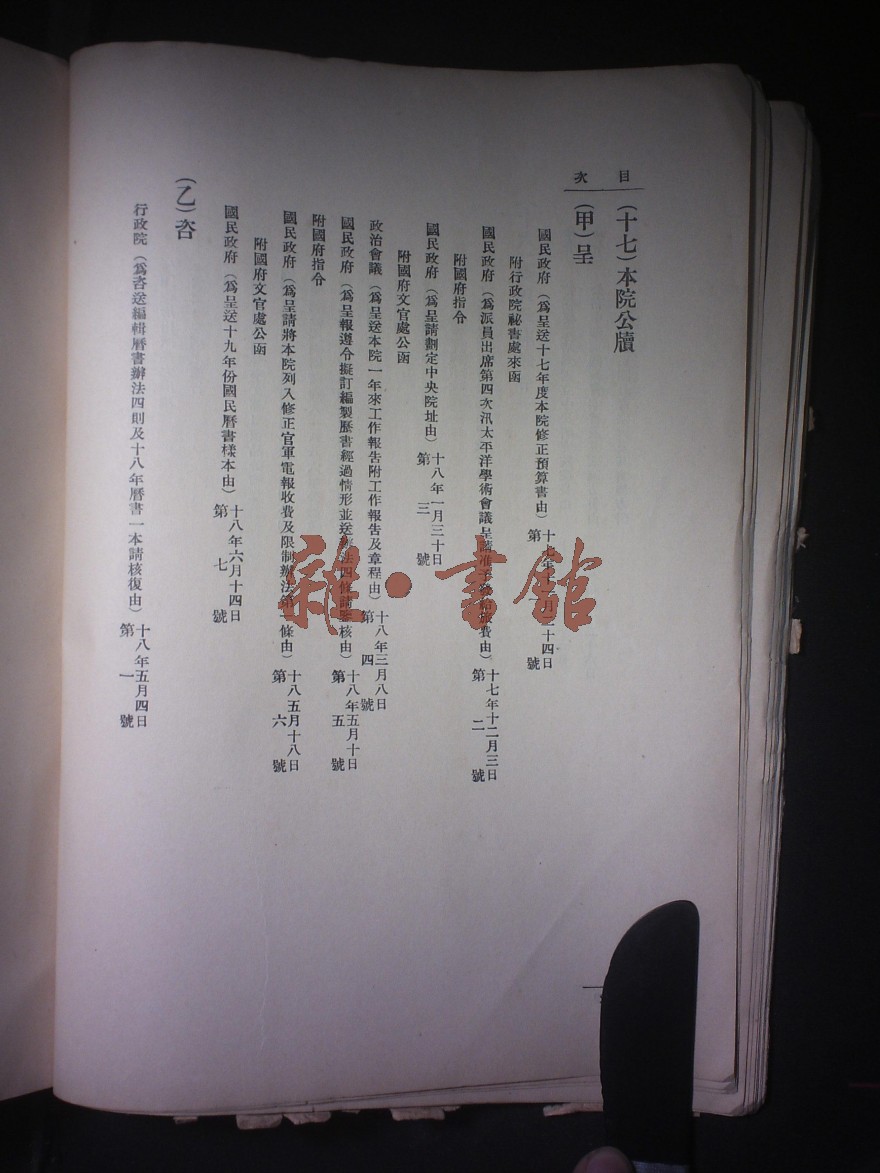 目次
（十七）本院公牘
（甲）呈
國民政府（爲呈送十七年度本院修正預算書由）十七年 月 二十四日 第 號
附行政院祕書處來函
國民政府（爲派員出席第四次汎太平洋學術會議呈請准予 費由）十七年十二月三日 第二號
附國府指令
國民政府（爲呈請劃定中央院址由）十八年一月三十日 第三號
附國府文官處公函
政治會議（爲呈送本院一年來工作報告附工作報告及章程由）十八年三月八日 第四號
國民政府（爲呈報遵令擬訂編製曆書經過情形並送 法四條請 核由）十八年五月十日 第五號
附國府指令
國民政府（爲呈請將本院列入修正官軍電報收費及限制辦法第 條由）十八五月十八日 第六號
附國府文官處公函
國民政府（爲呈送十九年份國民曆書樣本由）十八年六月十四日 第七號
（乙）咨
行政院（爲咨送編輯曆書辦法四則及十八年曆書一本請核復由）十八年五月四日 第一號
雜·書館